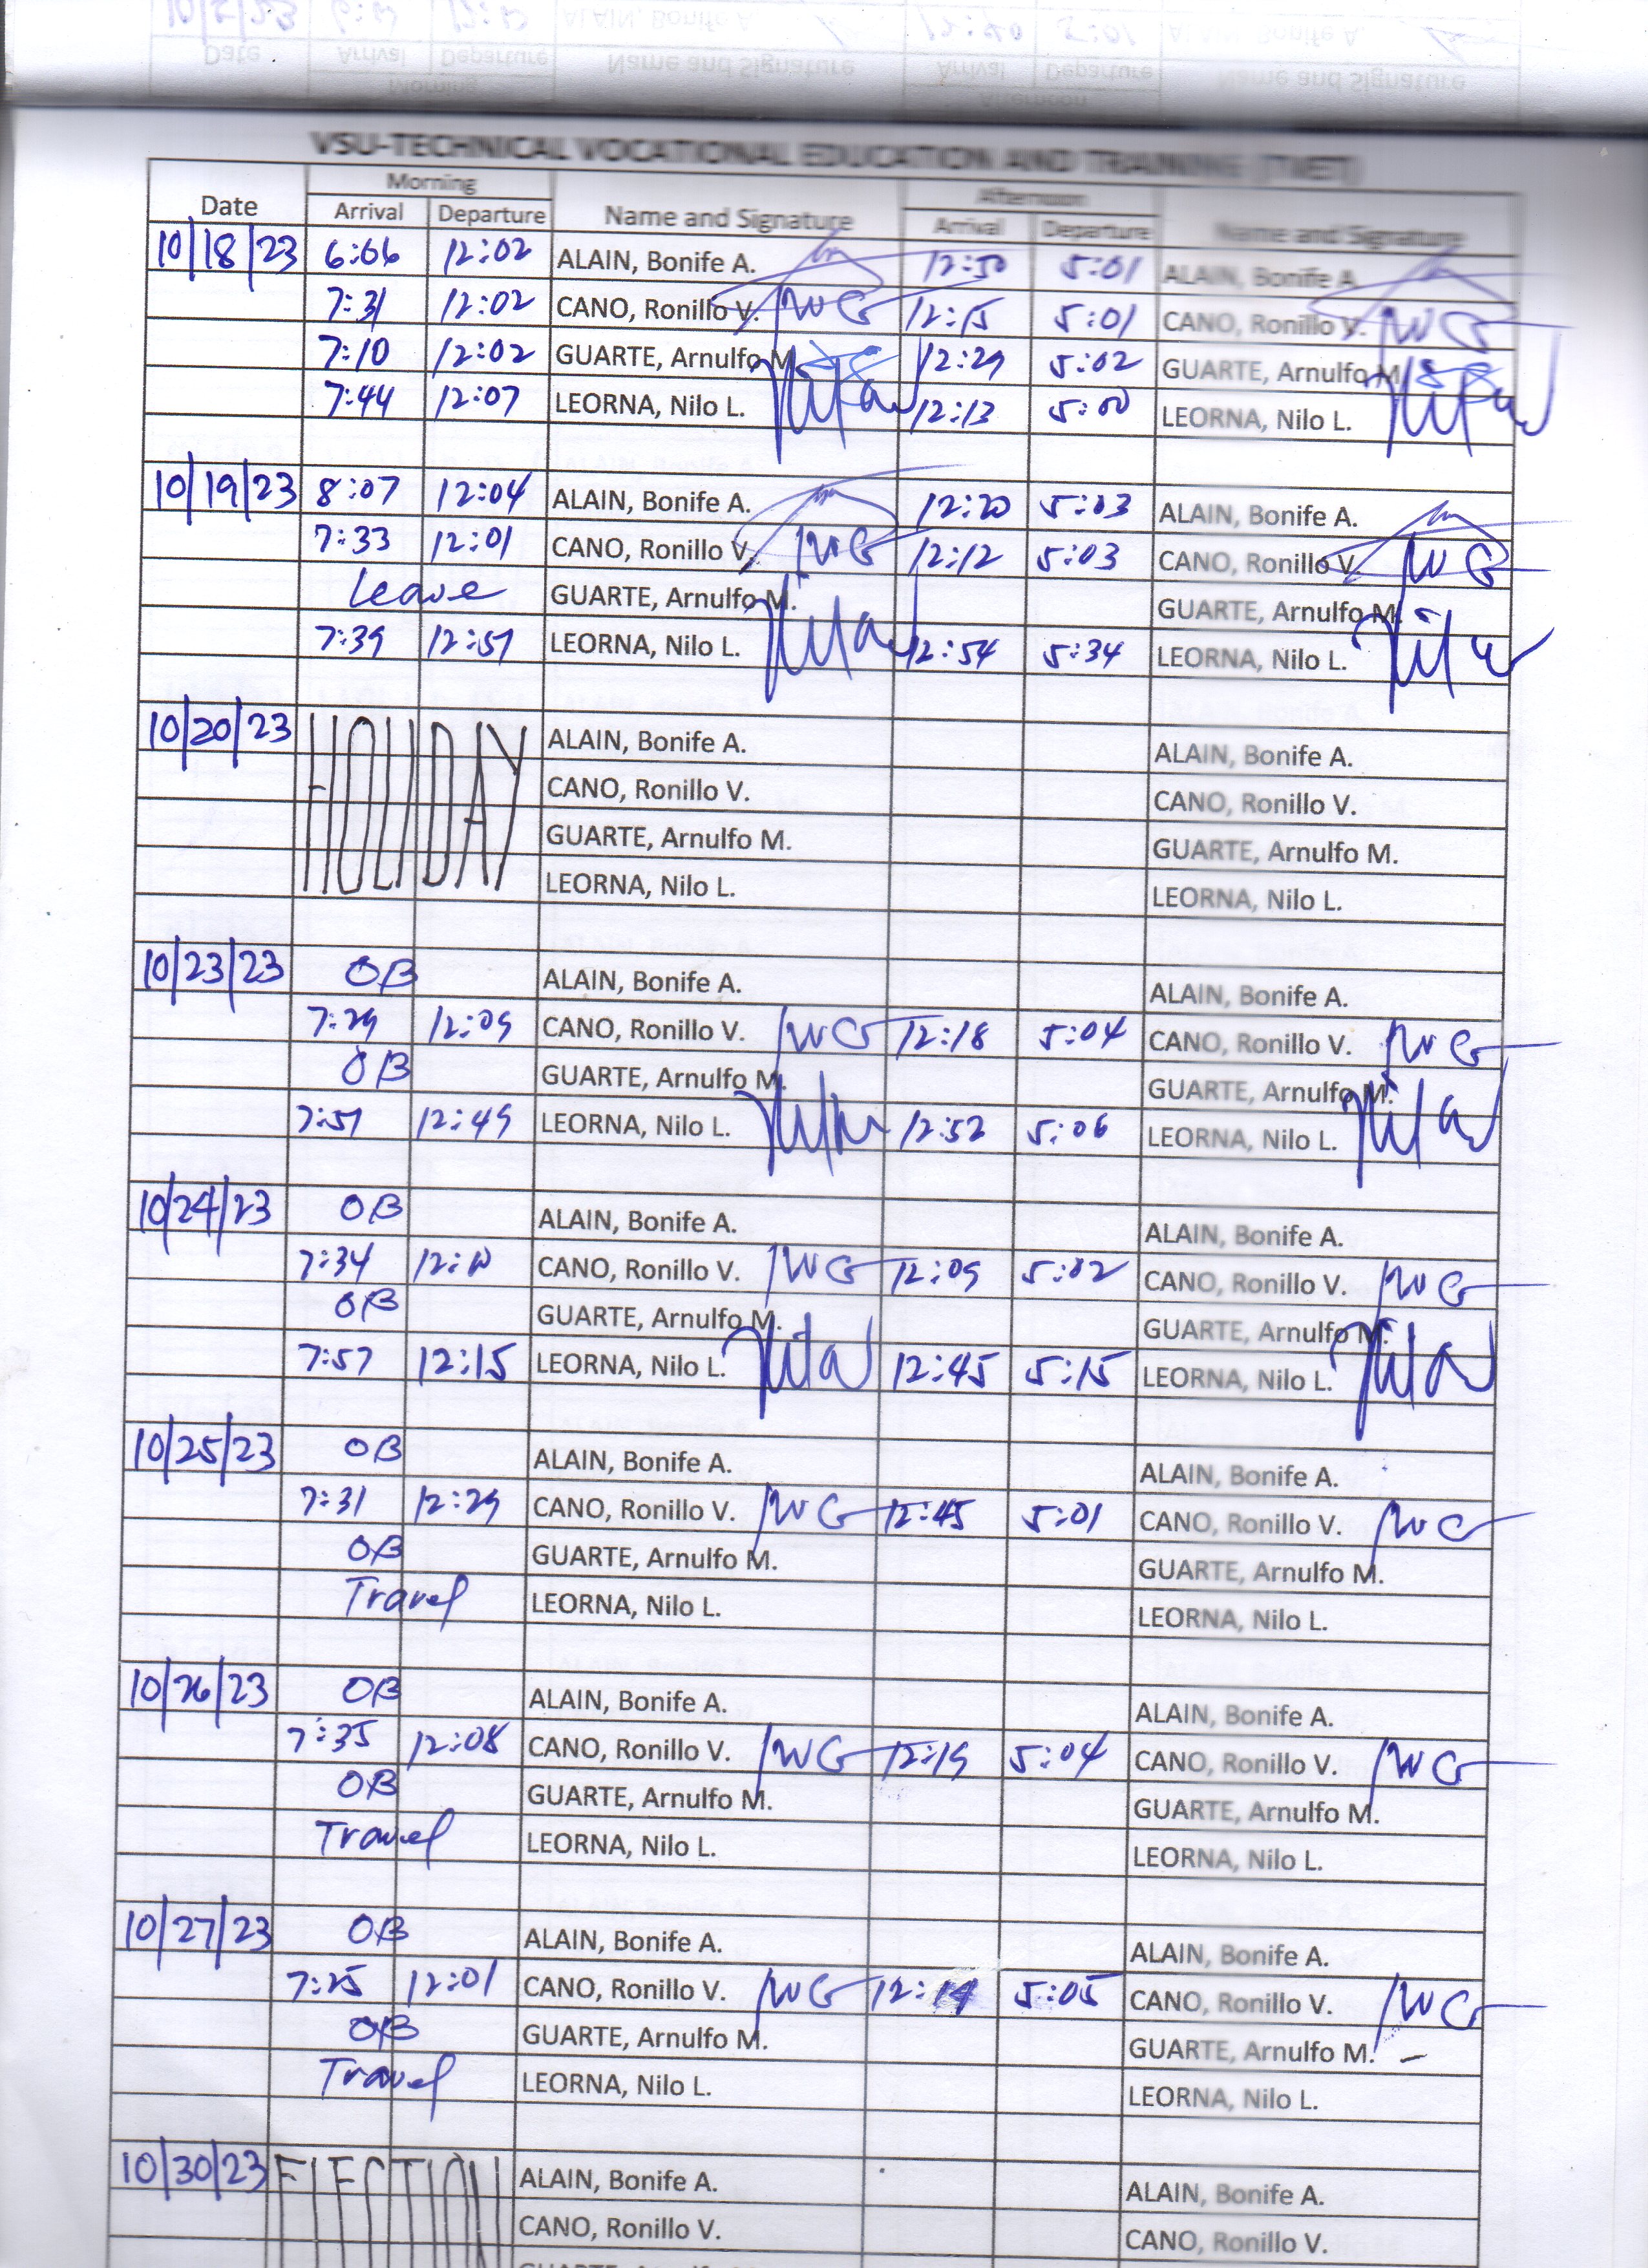 VSU-TECHNICAL VOCATIONAL EDUCATION AND TRAINING (TVET)
Morning Afternoon
Date Arrival Departure Name and Signature Arrival Departure Name and Signature
10/18/23 6:66 12:02 ALAIN, Bonife A. 12:50 5:01 ALAIN, Bonife A.
7:31 12:02 CANO, Ronillo V. 12:15 5:01 CANO, Ronillo V.
7:10 12:02 GUARTE, Arnulfo M. 12:29 5:02 GUARTE, Arnulfo M.
7:44 12:07 LEORNA, Nilo L. 12:13 5:00 LEORNA, Nilo L.
10/19/23 8:07 12:04 ALAIN, Bonife A. 12:20 5:03 ALAIN, Bonife A.
7:33 12:01 CANO, Ronillo V. 12:12 5:03 CANO, Ronillo V.
Leave GUARTE, Arnulfo M. GUARTE, Arnulfo M.
7:39 12:51 LEORNA, Nilo L. 12:54 5:34 LEORNA, Nilo L.
10/20/23 HOLIDAY ALAIN, Bonife A. ALAIN, Bonife A.
CANO, Ronillo V. CANO, Ronillo V.
GUARTE, Arnulfo M. GUARTE, Arnulfo M.
LEORNA, Nilo L. LEORNA, Nilo L.
10/23/23 OB ALAIN, Bonife A. ALAIN, Bonife A.
7:29 12:09 CANO, Ronillo V. 12:18 5:04 CANO, Ronillo V.
OB GUARTE, Arnulfo M. GUARTE, Arnulfo M.
7:51 12:49 LEORNA, Nilo L. 12:52 5:06 LEORNA, Nilo L.
10/24/23 OB ALAIN, Bonife A. ALAIN, Bonife A.
7:34 12:10 CANO, Ronillo V. 12:09 5:02 CANO, Ronillo V.
OB GUARTE, Arnulfo M. GUARTE, Arnulfo M.
7:57 12:15 LEORNA, Nilo L. 12:45 5:15 LEORNA, Nilo L.
10/25/23 OB ALAIN, Bonife A. ALAIN, Bonife A.
7:31 12:29 CANO, Ronillo V. 12:45 5:01 CANO, Ronillo V.
OB GUARTE, Arnulfo M. GUARTE, Arnulfo M.
Travel LEORNA, Nilo L. LEORNA, Nilo L.
10/26/23 OB ALAIN, Bonife A. ALAIN, Bonife A.
7:35 12:08 CANO, Ronillo V. 12:19 5:04 CANO, Ronillo V.
OB GUARTE, Arnulfo M. GUARTE, Arnulfo M.
Travel LEORNA, Nilo L. LEORNA, Nilo L.
10/27/23 OB ALAIN, Bonife A. ALAIN, Bonife A.
7:25 12:01 CANO, Ronillo V. 12:14 5:05 CANO, Ronillo V.
OB GUARTE, Arnulfo M. GUARTE, Arnulfo M.
Travel LEORNA, Nilo L. LEORNA, Nilo L.
10/30/23 ELECTION ALAIN, Bonife A. ALAIN, Bonife A.
CANO, Ronillo V. CANO, Ronillo V.